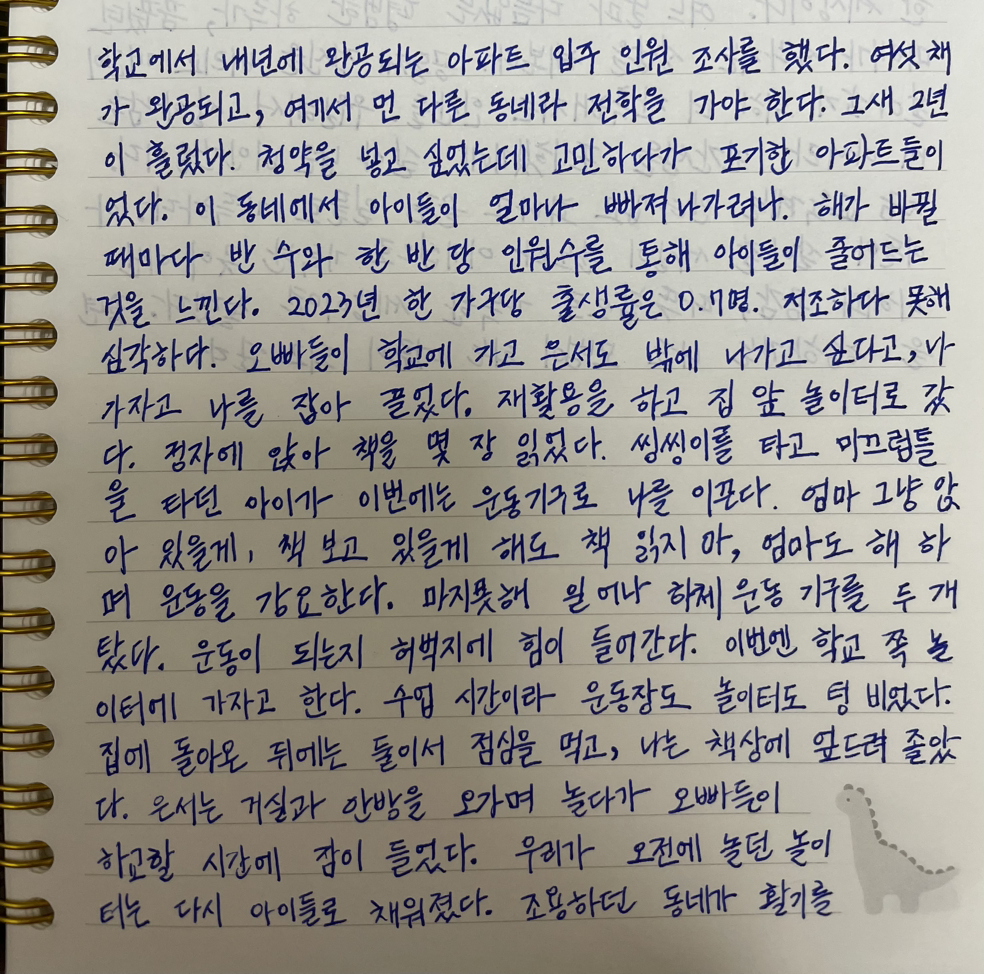 학교에서 내년에 완공되는 아파트 입주 인원 조사를 했다. 여섯 채
가 완공되고, 여기서 먼 다른 동네라 전학을 가야 한다. 그새 2년
이 흘렀다. 청약을 넣고 싶었는데 고민하다가 포기한 아파트들이
었다. 이 동네에서 아이들이 얼마나 빠져나가려나. 해가 바뀔
때마다 반 수와 한 반 당 인원수를 통해 아이들이 줄어드는
것을 느낀다. 2023년 한 가구당 출생률은 0.7명. 저조하다 못해
심각하다. 오빠들이 학교에 가고 은서도 밖에 나가고 싶다고, 나
가자고 나를 잡아 끌었다. 재활용을 하고 집 앞 놀이터로 갔
다. 정자에 앉아 책을 몇 장 읽었다. 씽씽이를 타고 미끄럼틀
을 타던 아이가 이번에는 운동기구로 나를 이끈다. 엄마 그냥 앉
아 있을게, 책 보고 있을게 해도 책 읽지 마, 엄마도 해 하
며 운동을 강요한다. 마지못해 일어나 하체 운동 기구를 두 개
탔다. 운동이 되는지 허벅지에 힘이 들어간다. 이번엔 학교 쪽 놀
이터에 가자고 한다. 수업 시간이라 운동장도 놀이터도 텅 비었다.
집에 돌아온 뒤에는 둘이서 점심을 먹고, 나는 책상에 엎드려 졸았
다. 은서는 거실과 안방을 오가며 놀다가 오빠들이
하교할 시간에 잠이 들었다. 우리가 오전에 놀던 놀이
터는 다시 아이들로 채워졌다. 조용하던 동네가 활기를